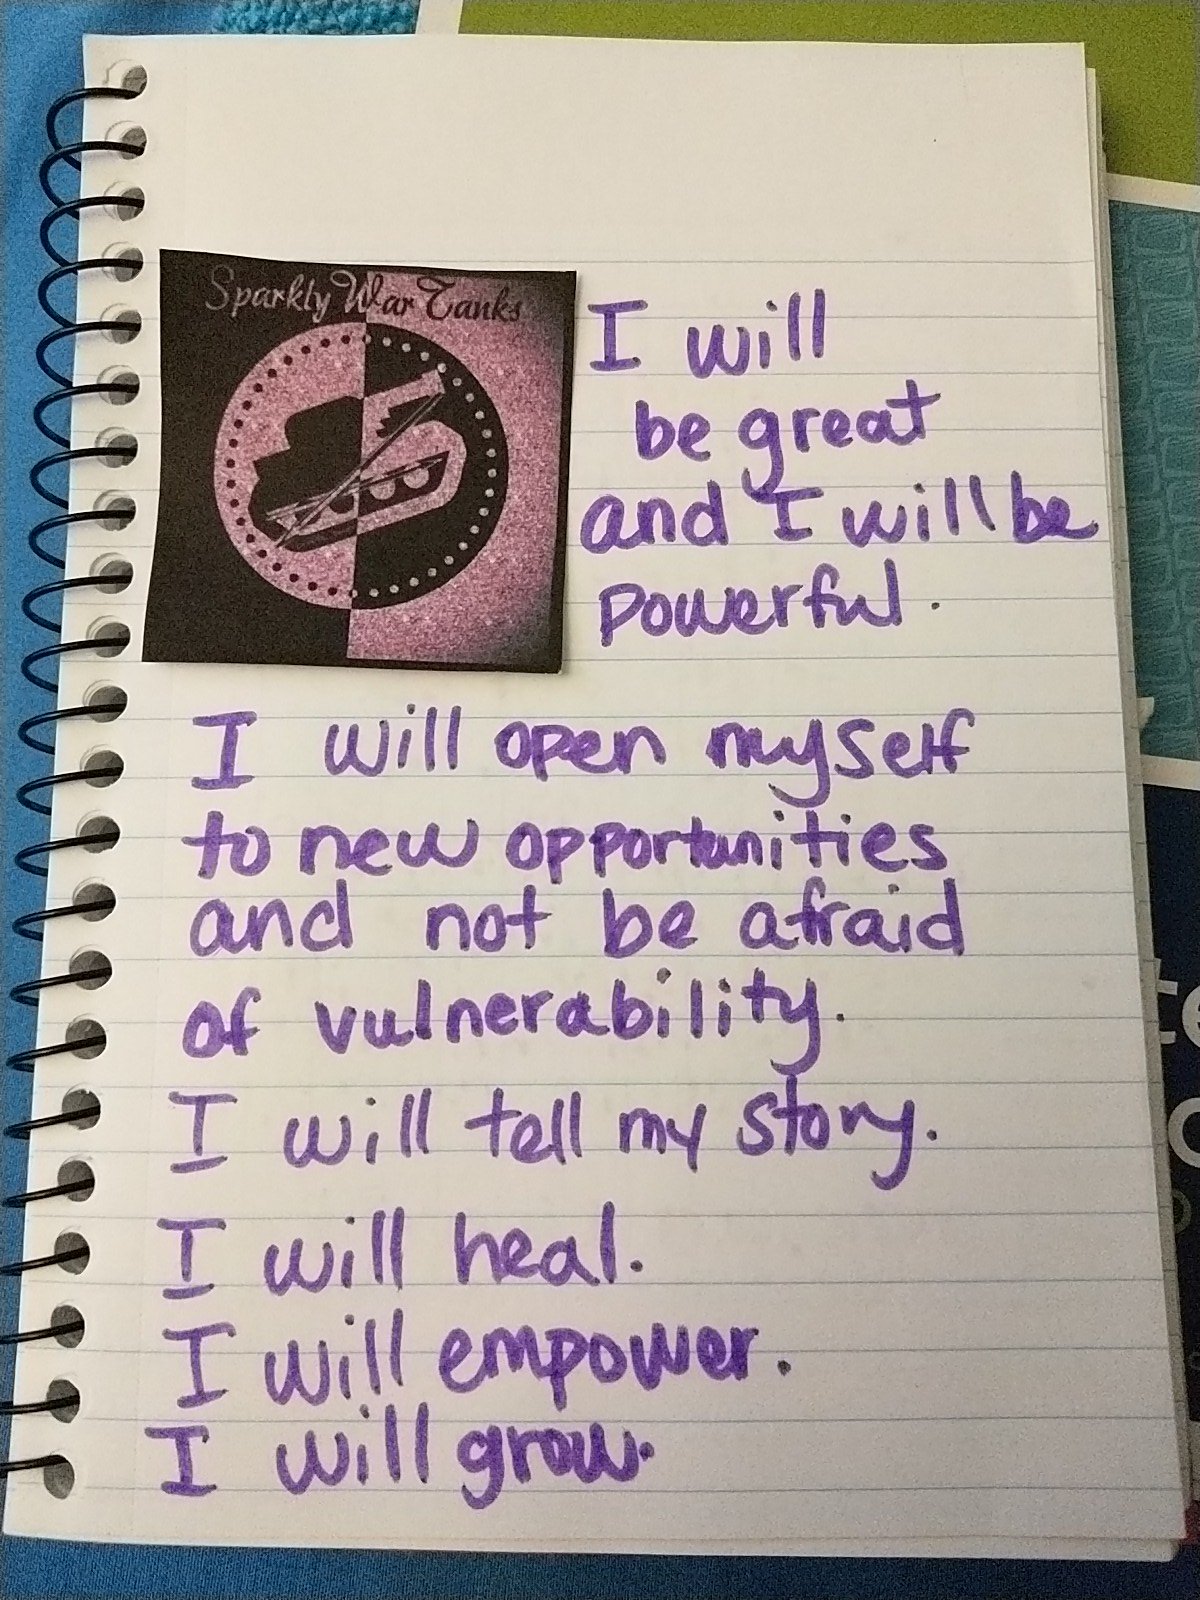 Sparkly War Tanks
I will
be great
and I will be
powerful.
I will open myself
to new opportunities
and not be afraid
of vulnerability.
I will tell my story.
I will heal.
I will empower.
I will grow.